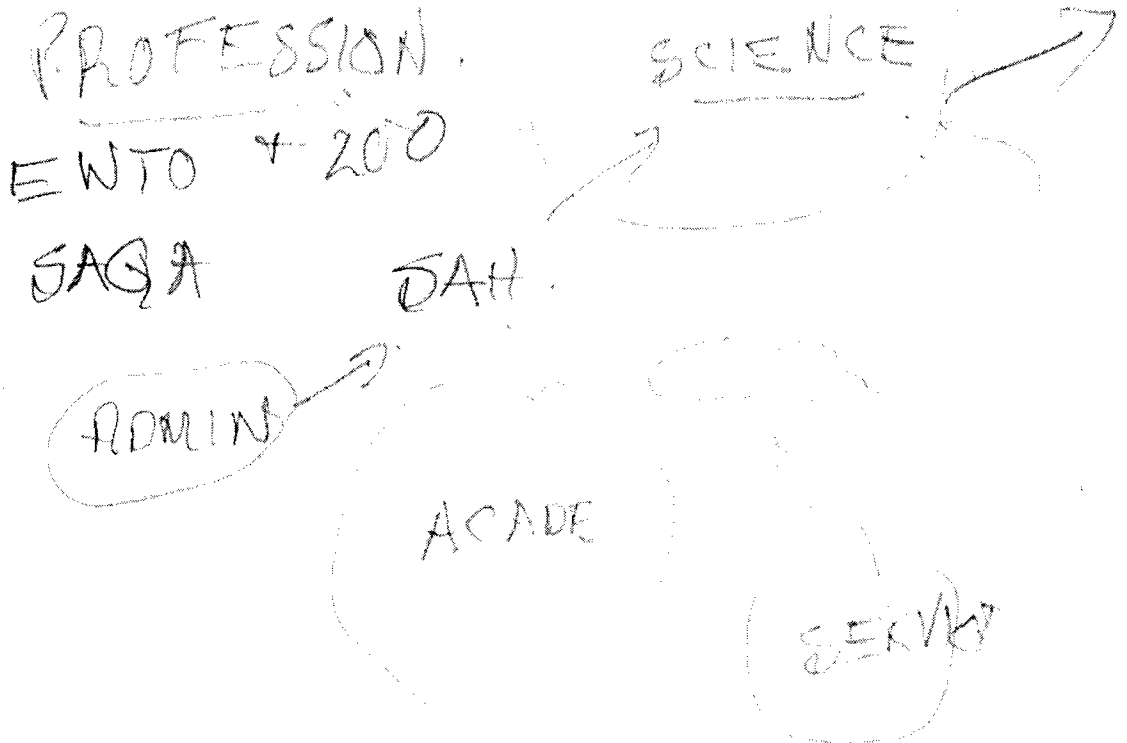 PROFESSION.
SCIENCE
EWTO + 200
SAQA
DAH.
ADMIN
ACADE